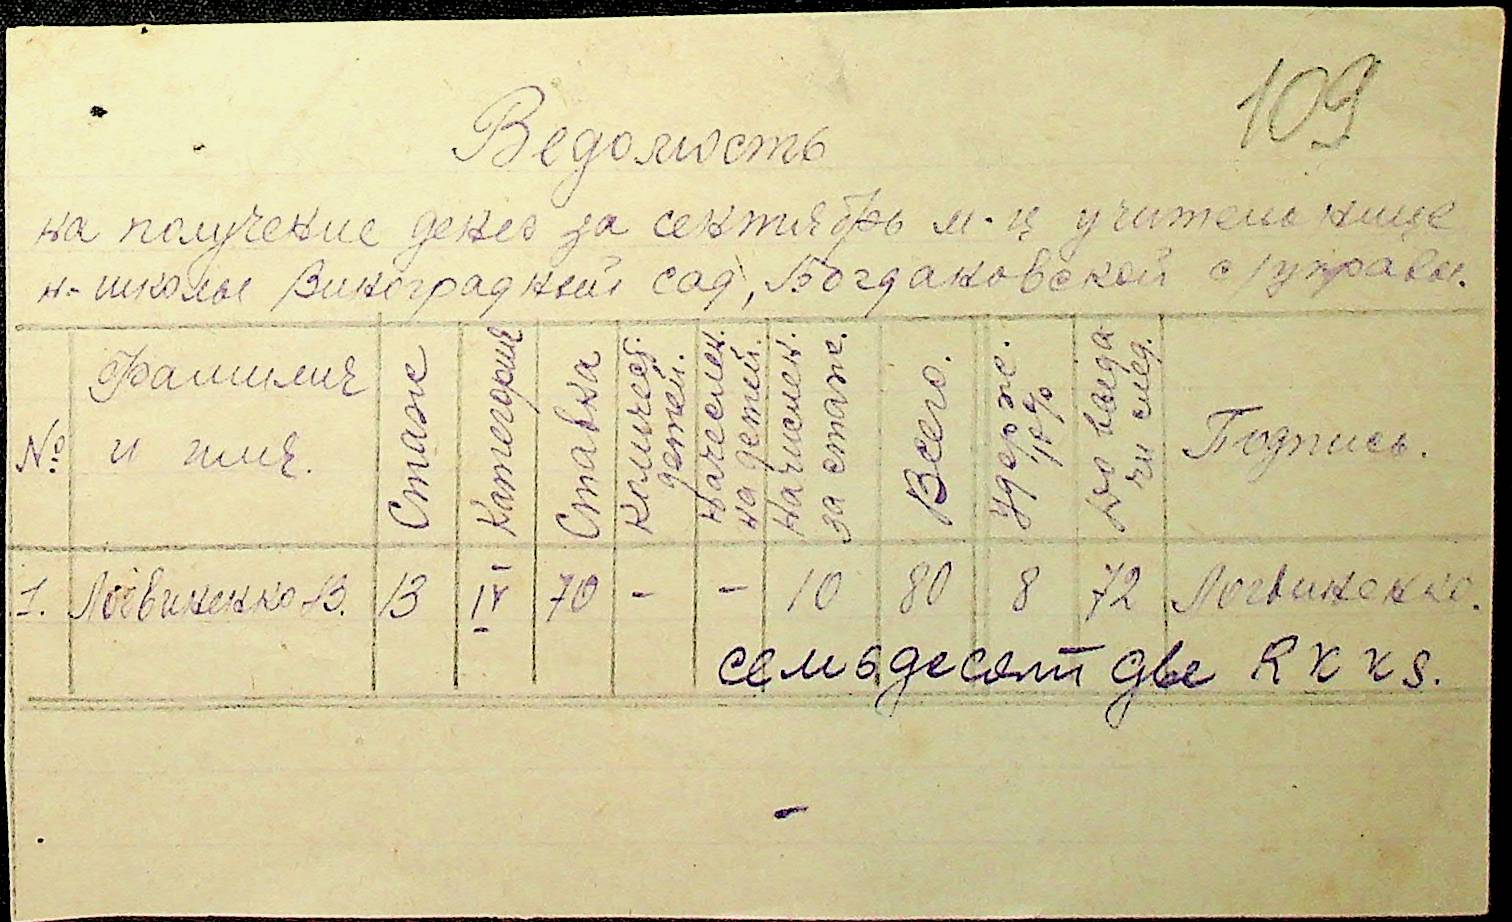 109
Ведомость
на получение денег за сентябрь м-ц учительнице
н-школы Виноградный сад, Богдановской с/управы.
№: Фамилия и имя. Стаж Категория Ставка Количест. детей. Начислен. на детей. Начислен. за стаж. Всего. Удерж. 10% До выда чи след. Подпись.
1. Логвиненко В. 13 IV 70 - - 10 80 8 72 Логвиненко.
семьдесят две RKKS.